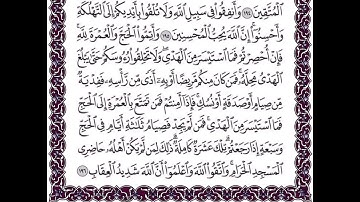 ٱلْمُتَّقِينَ ١٩٤ وَأَنفِقُوا۟ فِى سَبِيلِ ٱللَّهِ وَلَا تُلْقُوا۟ بِأَيْدِيكُمْ إِلَى ٱلتَّهْلُكَةِ
وَأَحْسِنُوٓا۟ إِنَّ ٱللَّهَ يُحِبُّ ٱلْمُحْسِنِينَ ١٩٥ وَأَتِمُّوا۟ ٱلْحَجَّ وَٱلْعُمْرَةَ لِلَّهِ
فَإِنْ أُحْصِرْتُمْ فَمَا ٱسْتَيْسَرَ مِنَ ٱلْهَدْىِ وَلَا تَحْلِقُوا۟ رُءُوسَكُمْ حَتَّىٰ يَبْلُغَ
ٱلْهَدْىُ مَحِلَّهُۥ فَمَن كَانَ مِنكُم مَّرِيضًا أَوْ بِهِۦٓ أَذًى مِّن رَّأْسِهِۦ فَفِدْيَةٌ
مِّن صِيَامٍ أَوْ صَدَقَةٍ أَوْ نُسُكٍ فَإِذَآ أَمِنتُمْ فَمَن تَمَتَّعَ بِٱلْعُمْرَةِ إِلَى ٱلْحَجِّ
فَمَا ٱسْتَيْسَرَ مِنَ ٱلْهَدْىِ فَمَن لَّمْ يَجِدْ فَصِيَامُ ثَلَٰثَةِ أَيَّامٍ فِى ٱلْحَجِّ
وَسَبْعَةٍ إِذَا رَجَعْتُمْ تِلْكَ عَشَرَةٌ كَامِلَةٌ ذَٰلِكَ لِمَن لَّمْ يَكُنْ أَهْلُهُۥ حَاضِرِى
ٱلْمَسْجِدِ ٱلْحَرَامِ وَٱتَّقُوا۟ ٱللَّهَ وَٱعْلَمُوٓا۟ أَنَّ ٱللَّهَ شَدِيدُ ٱلْعِقَابِ ١٩٦